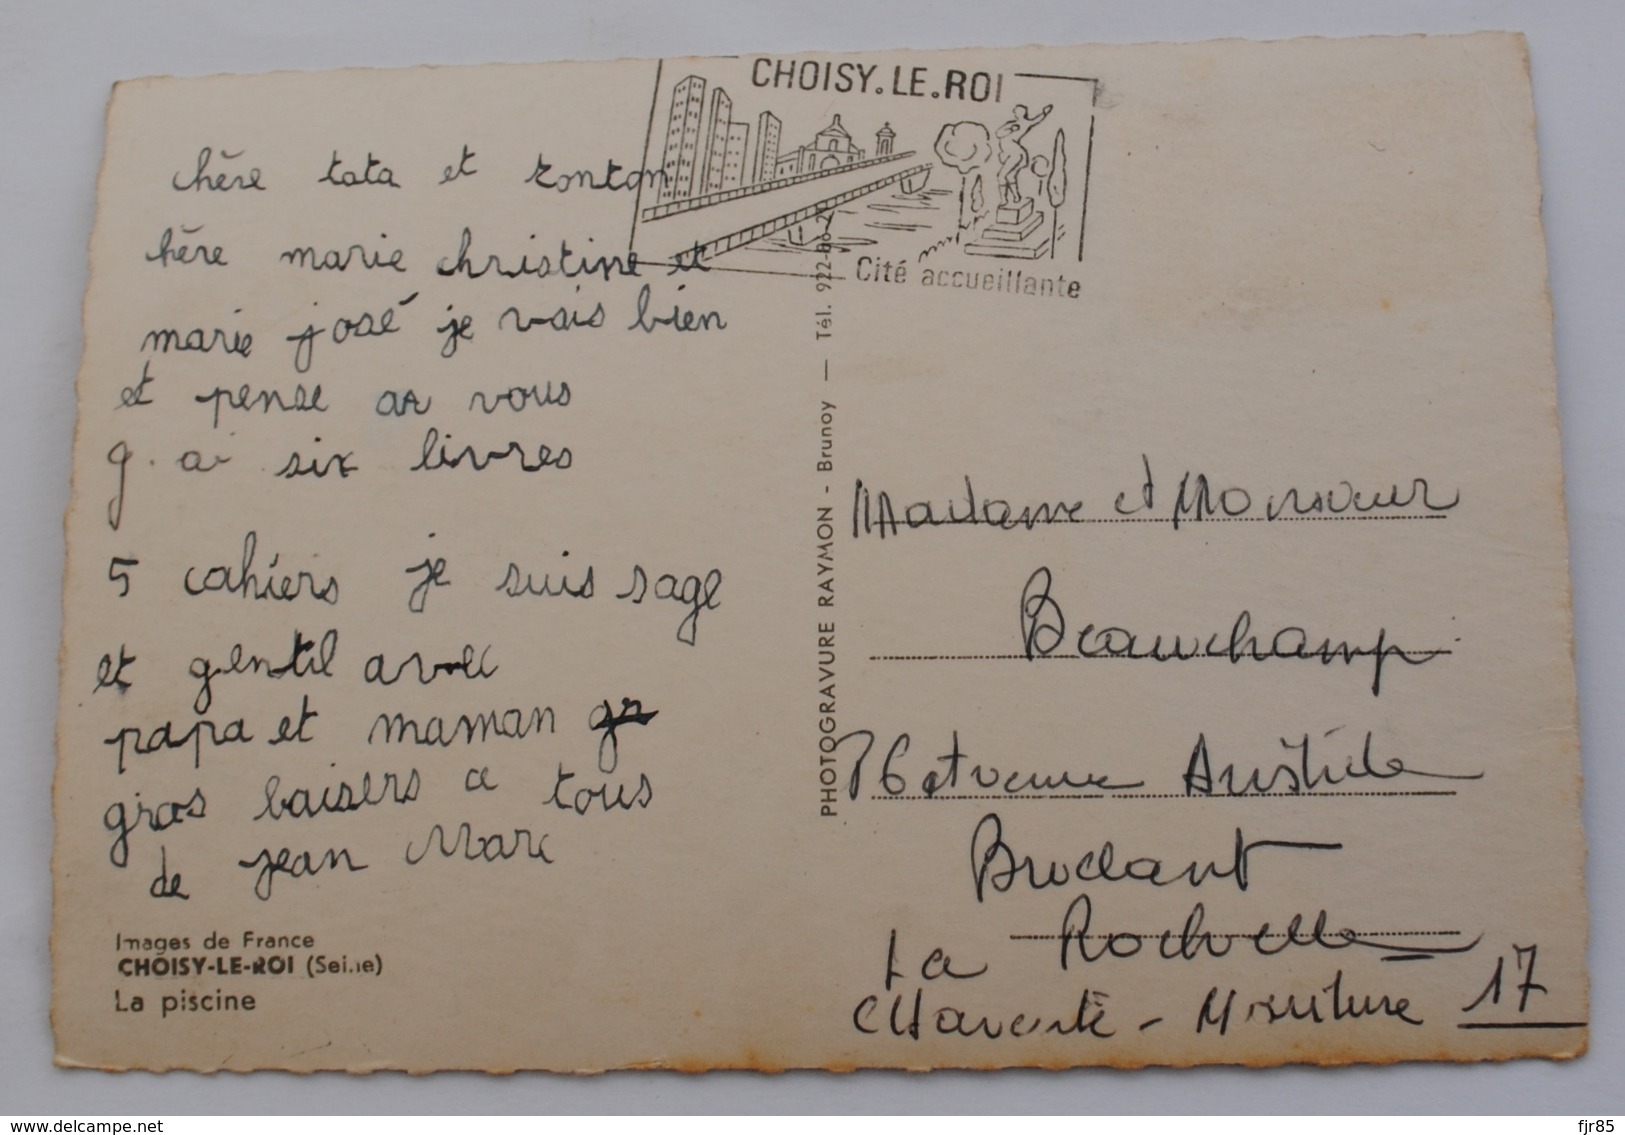 CHOISY.LE.ROI
Cité accueillante
chère tata et tonton
hère marie christine et
marie josé je vais bien
et pense a vous
g. ai six livres
5 cahiers je suis sage
et gentil avec
papa et maman gr
gros baisers a tous
de jean Marc
Images de France
CHOISY-LE-ROI (Seine)
La piscine
PHOTOGRAVURE RAYMON - Brunoy — Tél. 922-
Madame et Monsieur
Beauchamp
76 Avenue Aristide
Briand
La Rochelle
Charente - Maritime 17
www.delcampe.net
fjr85